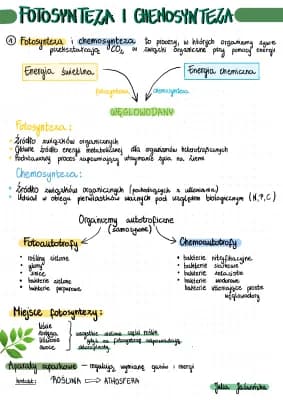 FOTOSYNTEZA I CHEMOSYNTEZA
① Fotosynteza i chemosynteza to procesy, w których organizmy żywe
przekształcają CO₂ w związki organiczne przy pomocy energii
Energia świetlna
Energia chemiczna
fotosynteza
chemosynteza
WĘGLOWODANY
Fotosynteza:
źródło związków organicznych
Główne źródło energii metabolicznej dla organizmów heterotroficznych
Podstawowy proces zapewniający utrzymanie życia na ziemi
Chemosynteza:
źródło związków organicznych (pochodzących z utleniania)
Udział w obiegu pierwiastków ważnych pod względem biologicznym (N,P,C)
Organizmy autotroficzne
(samożywne)
Fotoautotrofy
rośliny zielone
glony
sinice
bakterie zielone
bakterie purpurowe
Chemoautotrofy
bakterie nitryfikacyjne
bakterie siarkowe
bakterie żelaziste
bakterie wodorowe
bakterie utleniające proste
węglowodory
Miejsce fotosyntezy:
liście
łodyga
owoce
wszystkie zielone części roślin
gdyż za fotosyntezę odpowiadają
chloroplasty
Aparaty szparkowe – regulują wymianę gazów i energii
kontakt: ROŚLINA ATMOSFERA
Julia